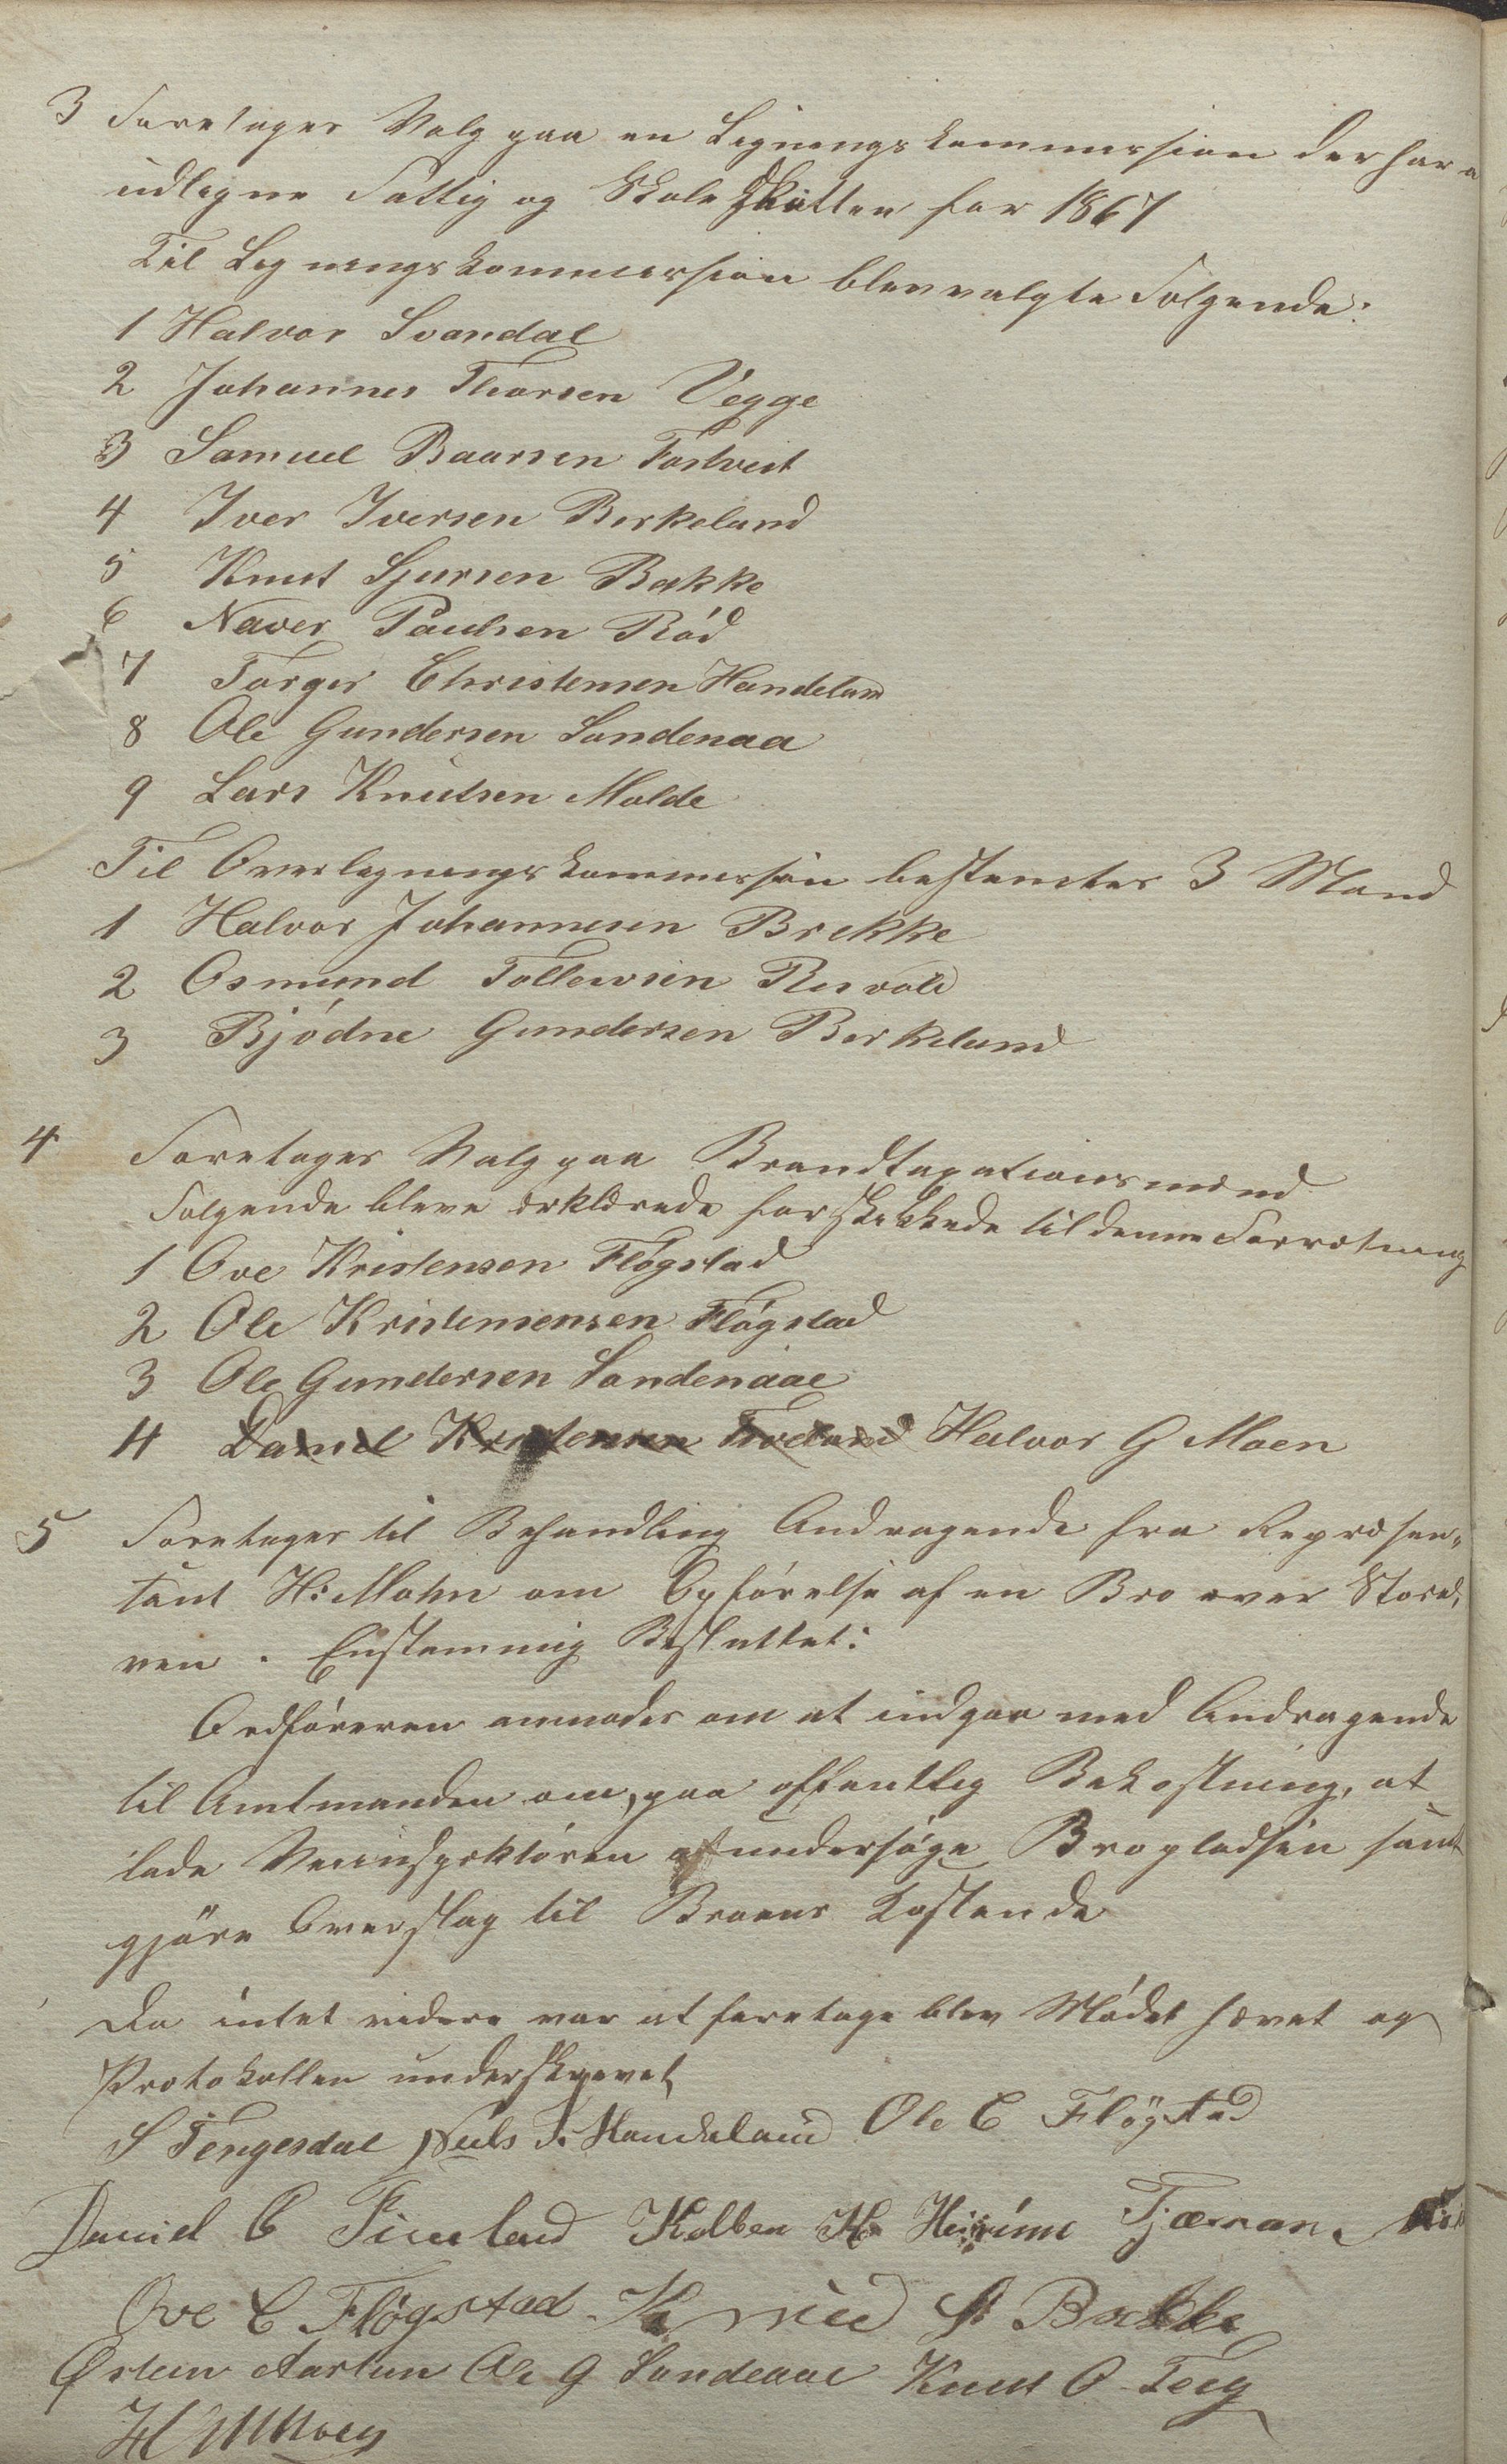 3 Foretages Valg paa en Ligningskommission der har a
udligne Fattig og Skoleskatten for 1867
Til Ligningskommission blev valgte Følgende:
1 Halvor Svandal
2 Johannes Thorsen Vegge
3 Samuel Baarsen Fostveit
4 Iver Iversen Birkeland
5 Knut Sjursen Bakke
6 Naver Paulsen Röd
7 Torger Christensen Handeland
8 Ole Gundersen Sandenaa
9 Lars Knutsen Molde
Til Overligningskommission bestemtes 3 Mand
1 Halvor Johannesen Brekke
2 Osmund Tollevsen Risvold
3 Bjödne Gundersen Birkeland
4 Foretages Valg paa Brandtaxationsmænd
Følgende bleve erklærede for skikkede til denne Forretning
1 Ove Kristensen Flögstad
2 Ole Kristensen Flögstad
3 Ole Gundersen Sandenaae
4 Daniel Kristensen Halvor G Moen
5 Foretages til Behandling Andragende fra Repræsen-
tant H. Mohn om Opförelse af en Bro over Storel,
ven. Enstemmig Besluttet:
Ordföreren anmodes om at indgaa med Andragende
til Amtmanden om, paa offentlig Bekostning, at
lade Veiinspektören undersöge Bropladsen samt
gjöre Overslag til Broens Kostende
Da intet videre var at foretage blev Mödet hævet og
Protokollen underskrevet
S Tengesdal Nils T. Handeland Ole C Flögstad
Daniel C Kolben H Tjæran.
Ove C Flögstad. Knud S Bakke
Østen Aartun Ole G Sandenaae Knut O Teig